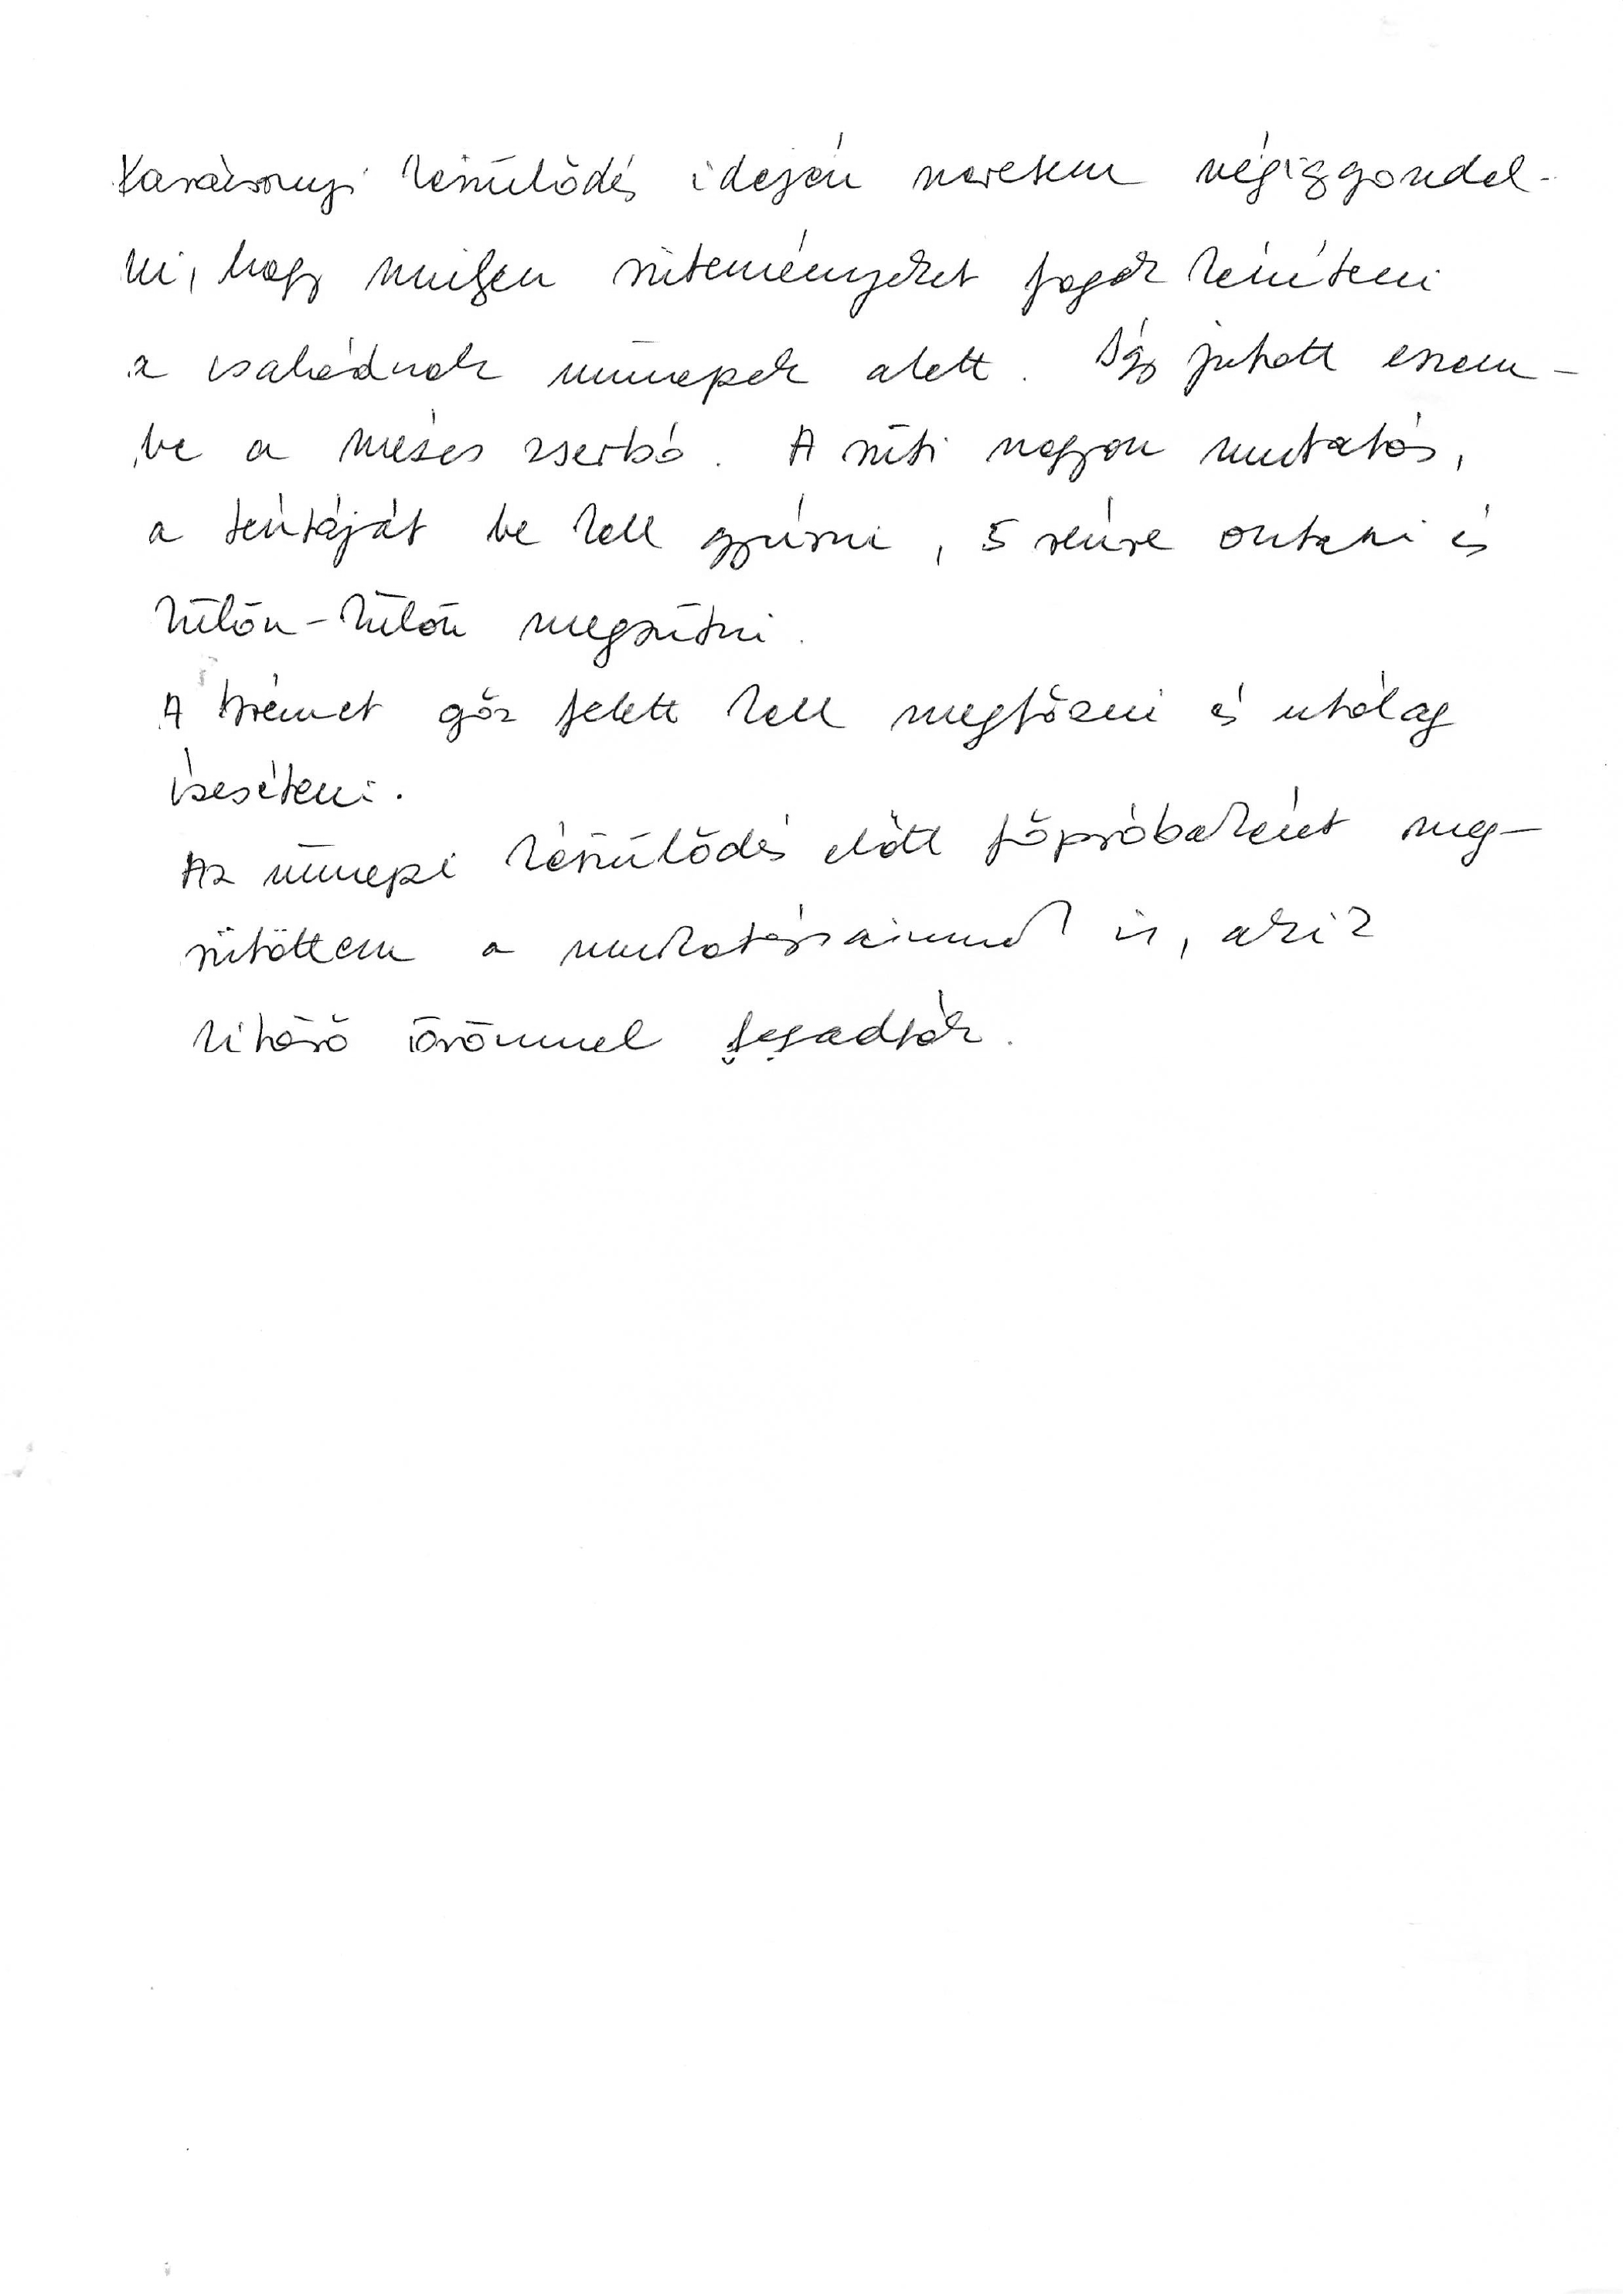 Karácsonyi készülődés idején szeretem végiggondol-
ni, hogy milyen süteményeket fogok készíteni
a családnak ünnepek alatt. Így jutott eszem-
be a mézes zserbó. A süti nagyon mutatós,
a tésztáját be kell gyúrni, 5 részre osztani és
külön-külön megsütni.
A krémet gőz felett kell megfőzni és utólag
ízesíteni.
Az ünnepi készülődés előtt főpróbaként meg-
sütöttem a munkatársaimnak is, akik
kitörő örömmel fogadták.